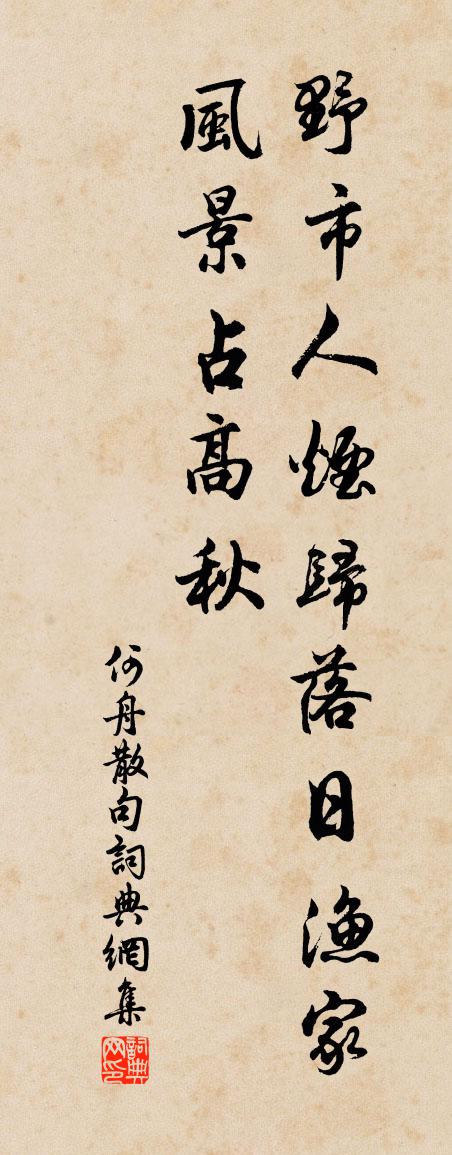 野市人煙歸落日漁家
風景占高秋
何舟散句詞典網集
詞典网印